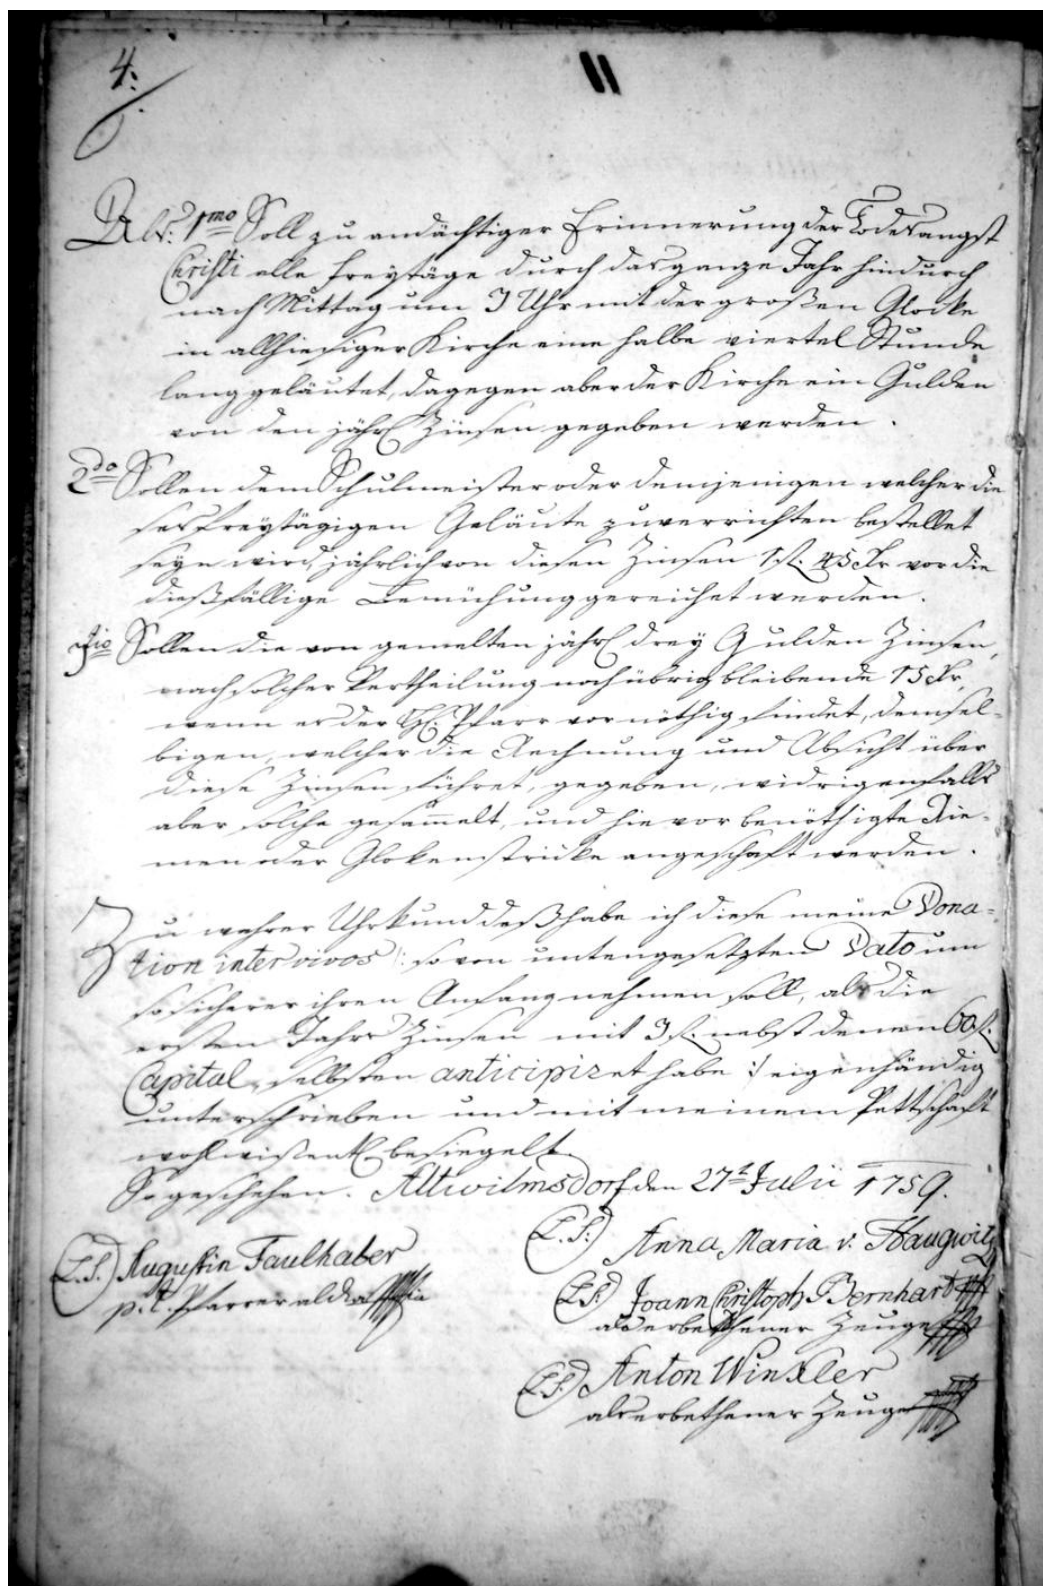 4.
II
Als: 1mo Soll zu andächtiger Erinnerung der Todes angst
Christi alle Freytäge durch das ganze Jahr hindurch
nach Mittag um 3 Uhr mit der großen Glocke
in allhiesiger Kirche eine halbe viertel Stunde
lang geläutet, dagegen aber der Kirche ein Gulden
von den jährl Zinsen gegeben werden.
2do Sollen dem Schulmeister oder demjenigen welcher die
ses Freytägigen Geläute zuverrichten bestellet
seyn wird, jährlich von diesen Zinsen 1 fl. 45 Xr vor die
dießfällige Bemühung gereichet werden.
3tio Sollen die von gemelten jährl drey Gulden Zinsen,
nach solcher Vertheilung noch übrig bleibende 15 Xr,
wenn es der H: Pfarr vor nöthig findet, demsel-
bigen, welcher die Rechnung und Absicht über
diese Zinsen führet, gegeben, widrigenfalls
aber solche gesam̄elt, und hievor benöthigte Rie-
men oder Glokenstricke angeschaft werden.
Zu wahrer Uhrkund deß habe ich diese meine Dona-
tion inter vivos /: so von untengesetzten Dato um
so sicherer ihren Anfang nehmen soll, als die
ersten Jahrs Zinsen mit 3 fl. nebst denen 60 fl.
Capital, selbsten anticipiret habe :/ eigenhändig
unterschrieben und mit meinem Pettschaft
wohlwißentl. besiegelt.
So geschehen. Altwilmsdorf den 27t Julii 1759.
(L.S.) Anna Maria v: Haugwitz
(L.S.) Augustin Faulhaber
p.t. Pfarrer alda
(L.S.) Joann Christoph Bernhart
als erbethener Zeuge
(L.S.) Anton Winkler
als erbethener Zeuge